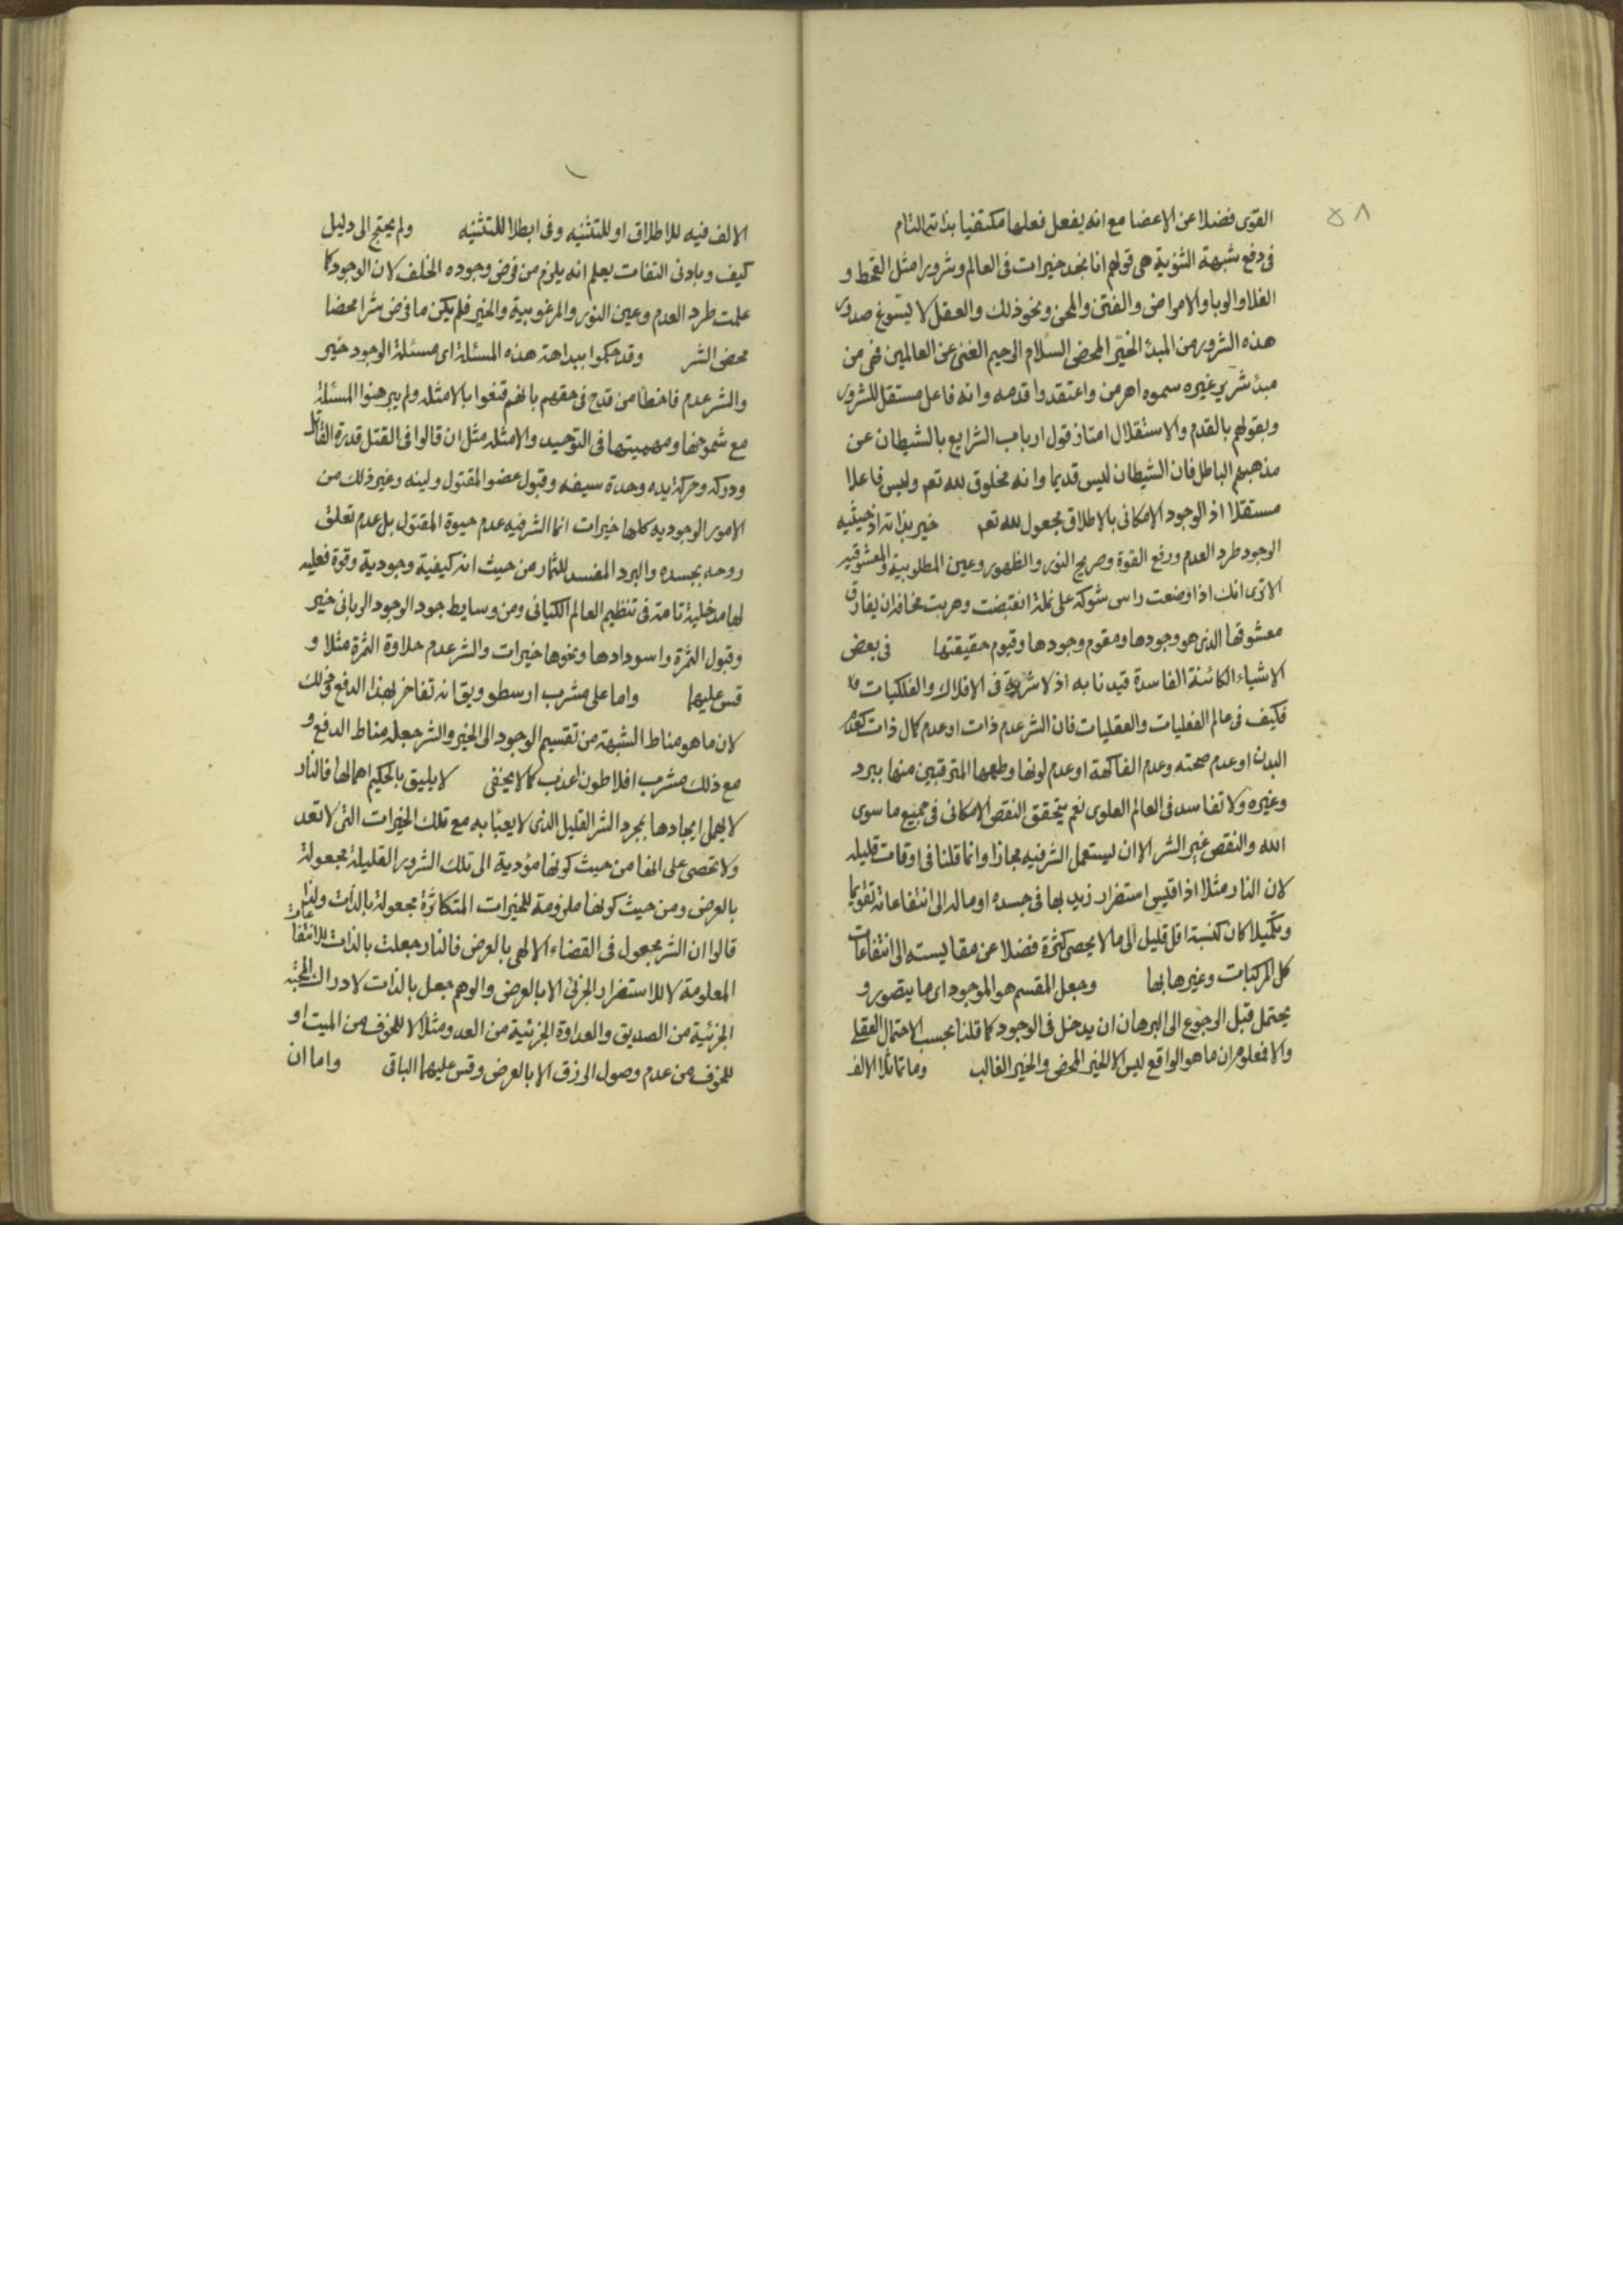 ٥٨
القوى فضلا عن الاعضا مع انه يفعل فعلها مكتفيا بذاته التام
فى دفع شبهة الثنوية هى قولهم انا نجد خيرات فى العالم وشرورا مثل القحط و
الغلا والوبا والامراض والفتن والمحن ونحو ذلك والعقل لا يسوغ صدور
هذه الشرور من المبدء الخير المحض السلام الرحيم الغنى عن العالمين فهى من
مبدء شرير غيره سموه اهرمن واعتقدوا قدمه وانه فاعل مستقل للشرور
وبقولهم بالقدم والاستقلال امتاز قول ارباب الشرايع بالشيطان عن
مذهبهم الباطل فان الشيطان ليس قديما وانه مخلوق لله تعم وليس فاعلا
مستقلا اذ الوجود الامكانى بالاطلاق مجعول لله تعم خير بذاته اذ حيثيه
الوجود طرد العدم ورفع القوة وصريح النور والظهور وعين المطلوبية والمعشوقيه
الا ترى انك اذا وضعت راس شوكة على نملة انقبضت وهربت مخافة ان يفارق
معشوقها الذى هو وجودها ومقوم وجودها وقيوم حقيقتها فى بعض
الاشياء الكائنة الفاسدة قيدنا به اذ لا شرية فى الافلاك والفلكيات
فكيف فى عالم الفعليات والعقليات فان الشر عدم ذات او عدم كمال ذات كعدم
البدن او عدم صحته وعدم الفاكهة او عدم لونها وطعمها المترقبين منها ببرد
وغيره ولا تفاسد فى العالم العلوى نعم يتحقق النقص الامكانى فى جميع ما سوى
الله والنقص غير الشر الا ان يستعمل الشر فيه مجازا وانما قلنا فى اوقات قليله
لان النار مثلا اذا قيس استضرار زيد بها فى جسده او ماله الى انتفاعاته تقويما
وتكميلا كان كنسبة اقل قليل الى ما لا يحصى كثرة فضلا عن مقايسته الى انتفاعات
كل المركبات وغيرها بها وجعل المقسم هو الموجود اى ما يتصور و
يحتمل قبل الرجوع الى البرهان ان يدخل فى الوجود كما قلنا بحسب الاحتمال العقلى
والا فمعلوم ان ما هو الواقع ليس الا الخير المحض والخير الغالب وما تماثلا الالف
الالف فيه للاطلاق او للتثنيه وفى ابطلا للتثنيه ولم يحتج الى دليل
كيف وبادنى التفات يعلم انه يلزم من فرض وجوده الخلف لان الوجود كما
علمت طرد العدم وعين النور والمرغوبية والخير فلم يكن ما فرض شرا محضا
محض الشر وقد حكموا ببداهة هذه المسئلة اى مسئلة الوجود خير
والشر عدم فاخطأ من قدح فى حقهم بانهم قنعوا بالامثله ولم يبرهنوا المسئلة
مع شموخها ومهميتها فى التوحيد والامثله مثل ان قالوا فى القتل قدرة القاتل
ودركه وحركة يده وحدة سيفه وقبول عضو المقتول ولينه وغير ذلك من
الامور الوجوديه كلها خيرات انما الشر فيه عدم حيوة المقتول بل عدم تعلق
روحه بجسده والبرد المفسد للثمار من حيث انه كيفية وجودية وقوة فعليه
لها مدخلية تامة فى تنظيم العالم الكيانى ومن وسايط جود الوجود الربانى خير
وقبول الثمرة واسودادها ونحوها خيرات والشر عدم حلاوة الثمرة مثلا و
قس عليهما واما على مشرب ارسطو ويق انه تفاخر بهذا الدفع فذلك
لان ما هو مناط الشبهة من تقسيم الوجود الى الخير والشر جعله مناط الدفع و
مع ذلك مشرب افلاطون اعذب كما لا يخفى لا يليق بالحكيم اهمالها فالنار
لا يهمل ايجادها بمجرد الشر القليل الذى لا يعبأ به مع تلك الخيرات التى لا تعد
ولا تحصى على انها من حيث كونها مؤدية الى تلك الشرور القليلة مجعولة
بالعرض ومن حيث كونها ملزومة للخيرات المتكاثرة مجعولة بالذات ولذا
قالوا ان الشر مجعول فى القضاء الالهى بالعرض فالنار جعلت بالذات للانتفاعات
المعلومة لا للاستضرار الجزئى الا بالعرض والوهم جعل بالذات لادراك المحبة
الجزئية من الصديق والعداوة الجزئية من العدو مثلا لا للخوف من الميت او
للخوف من عدم وصول الرزق الا بالعرض وقس عليهما الباقى واما ان